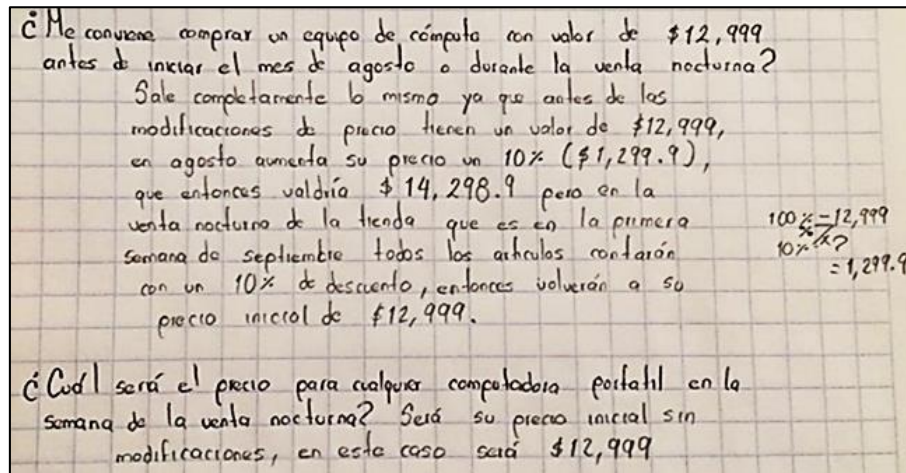 ¿Me conviene comprar un equipo de cómputo con valor de $12,999
antes de iniciar el mes de agosto o durante la venta nocturna?
Sale completamente lo mismo ya que antes de las
modificaciones de precio tienen un valor de $12,999,
en agosto aumenta su precio un 10% ($1,299.9),
que entonces valdría $14,298.9 pero en la
venta nocturna de la tienda que es en la primera
semana de septiembre todos los artículos contarán
con un 10% de descuento, entonces volverán a su
precio inicial de $12,999.
100% - 12,999
10% - x?
= 1,299.9
¿Cuál será el precio para cualquier computadora portatil en la
semana de la venta nocturna? Será su precio inicial sin
modificaciones, en este caso será $12,999